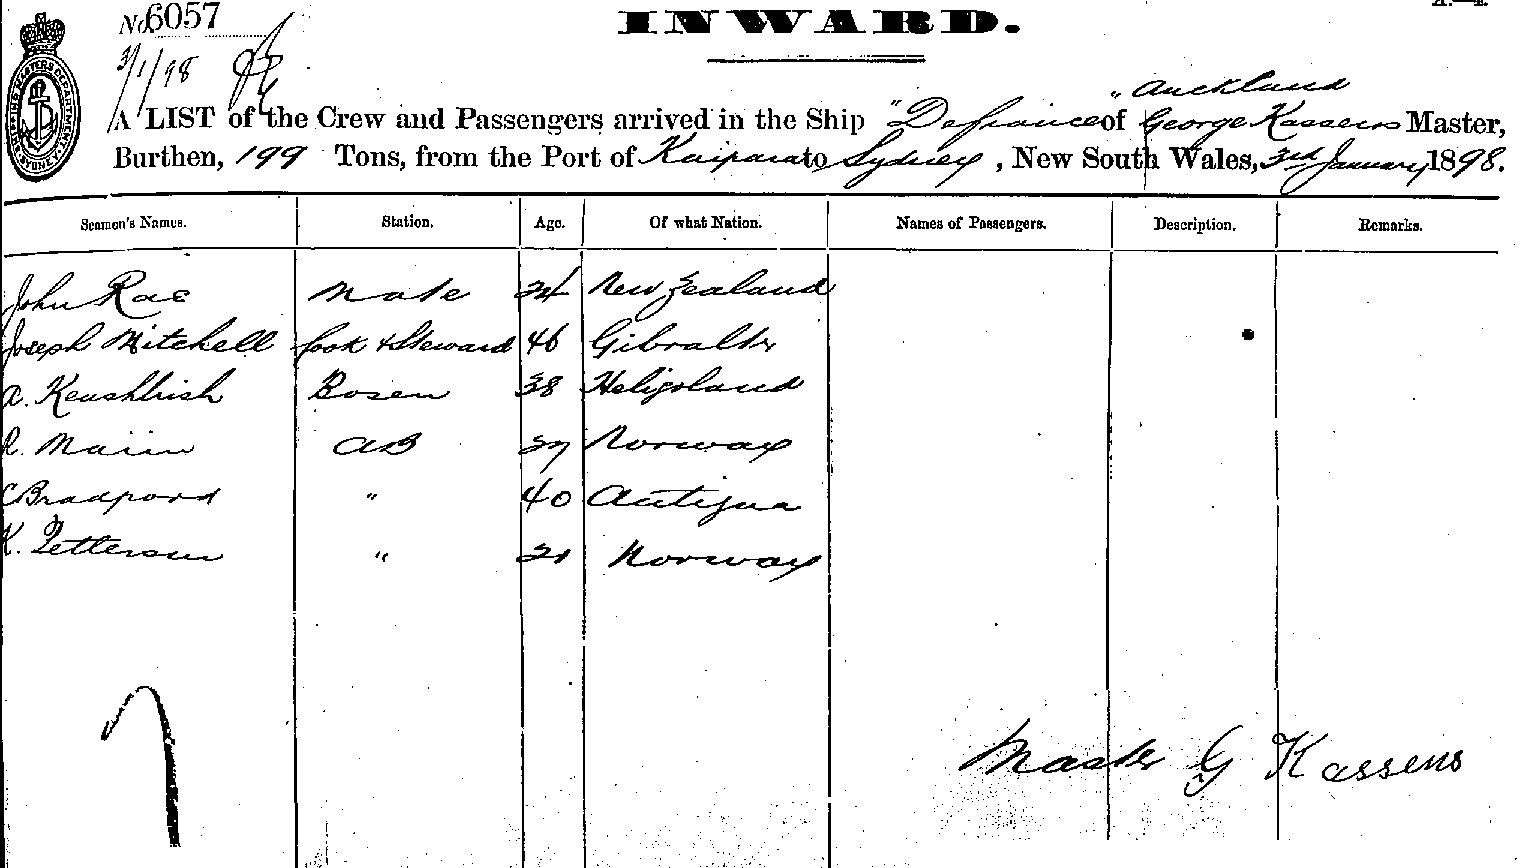 No. 6057
INWARD.
3/1/98
" Auckland
A LIST of the Crew and Passengers arrived in the Ship "Defiance of George Kassens Master,
Burthen, 199 Tons, from the Port of Kaipara to Sydney, New South Wales, 3rd January 1898.
Seamen's Names. Station. Age. Of what Nation. Names of Passengers. Description. Remarks.
John Rae Mate 24 New Zealand
Joseph Mitchell Cook & Steward 46 Gibralter
A. Bosen 38 Heligoland
AB Norway
C Bradford " 40 Antigua
K. Petterson " 21 Norway
7
Master G Kassens